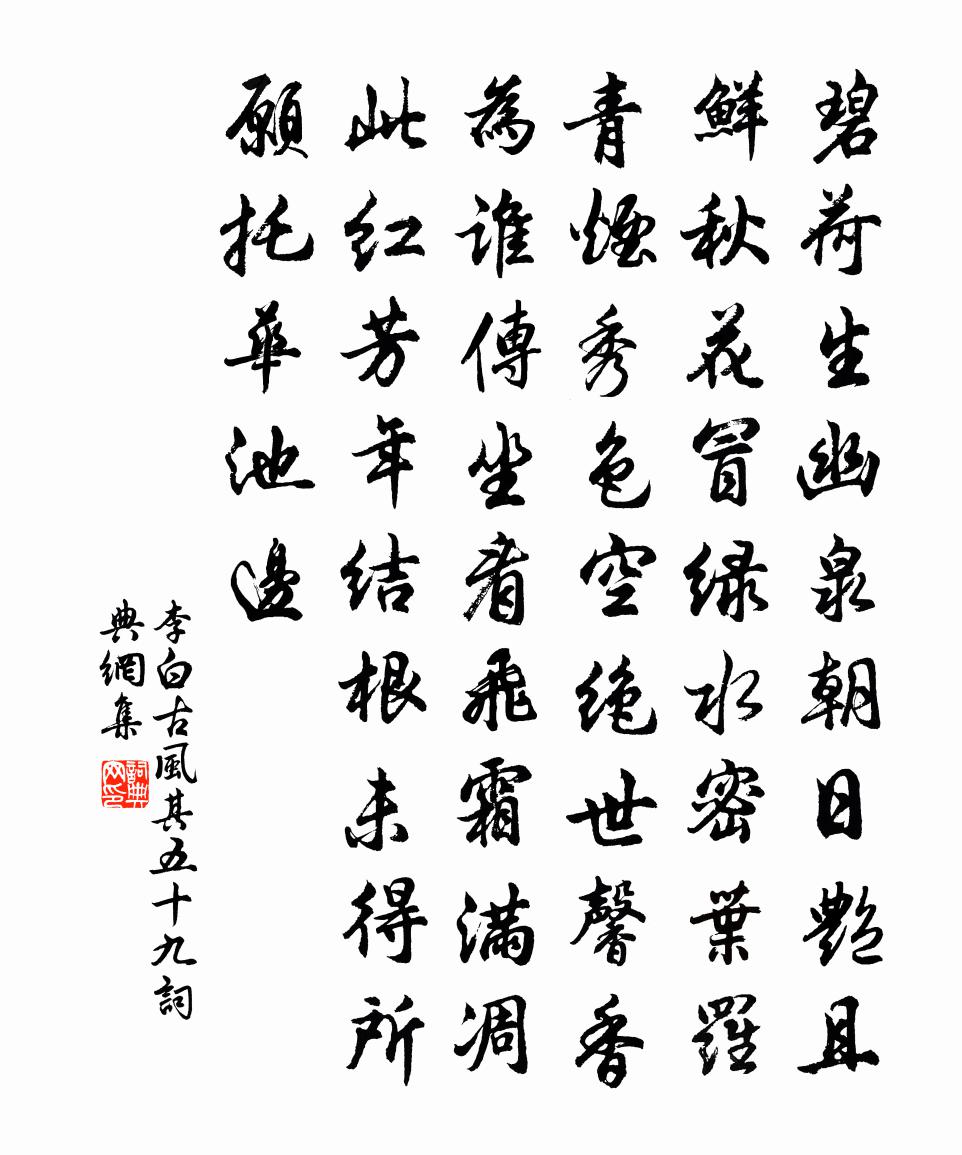 碧荷生幽泉朝日艷且
鮮秋花冒緑水密葉羅
青煙秀色空絶世馨香
為誰傳坐看飛霜滿凋
此红芳年结根未得所
願托華池邊
李白古風其五十九詞
典網集
詞典
网印